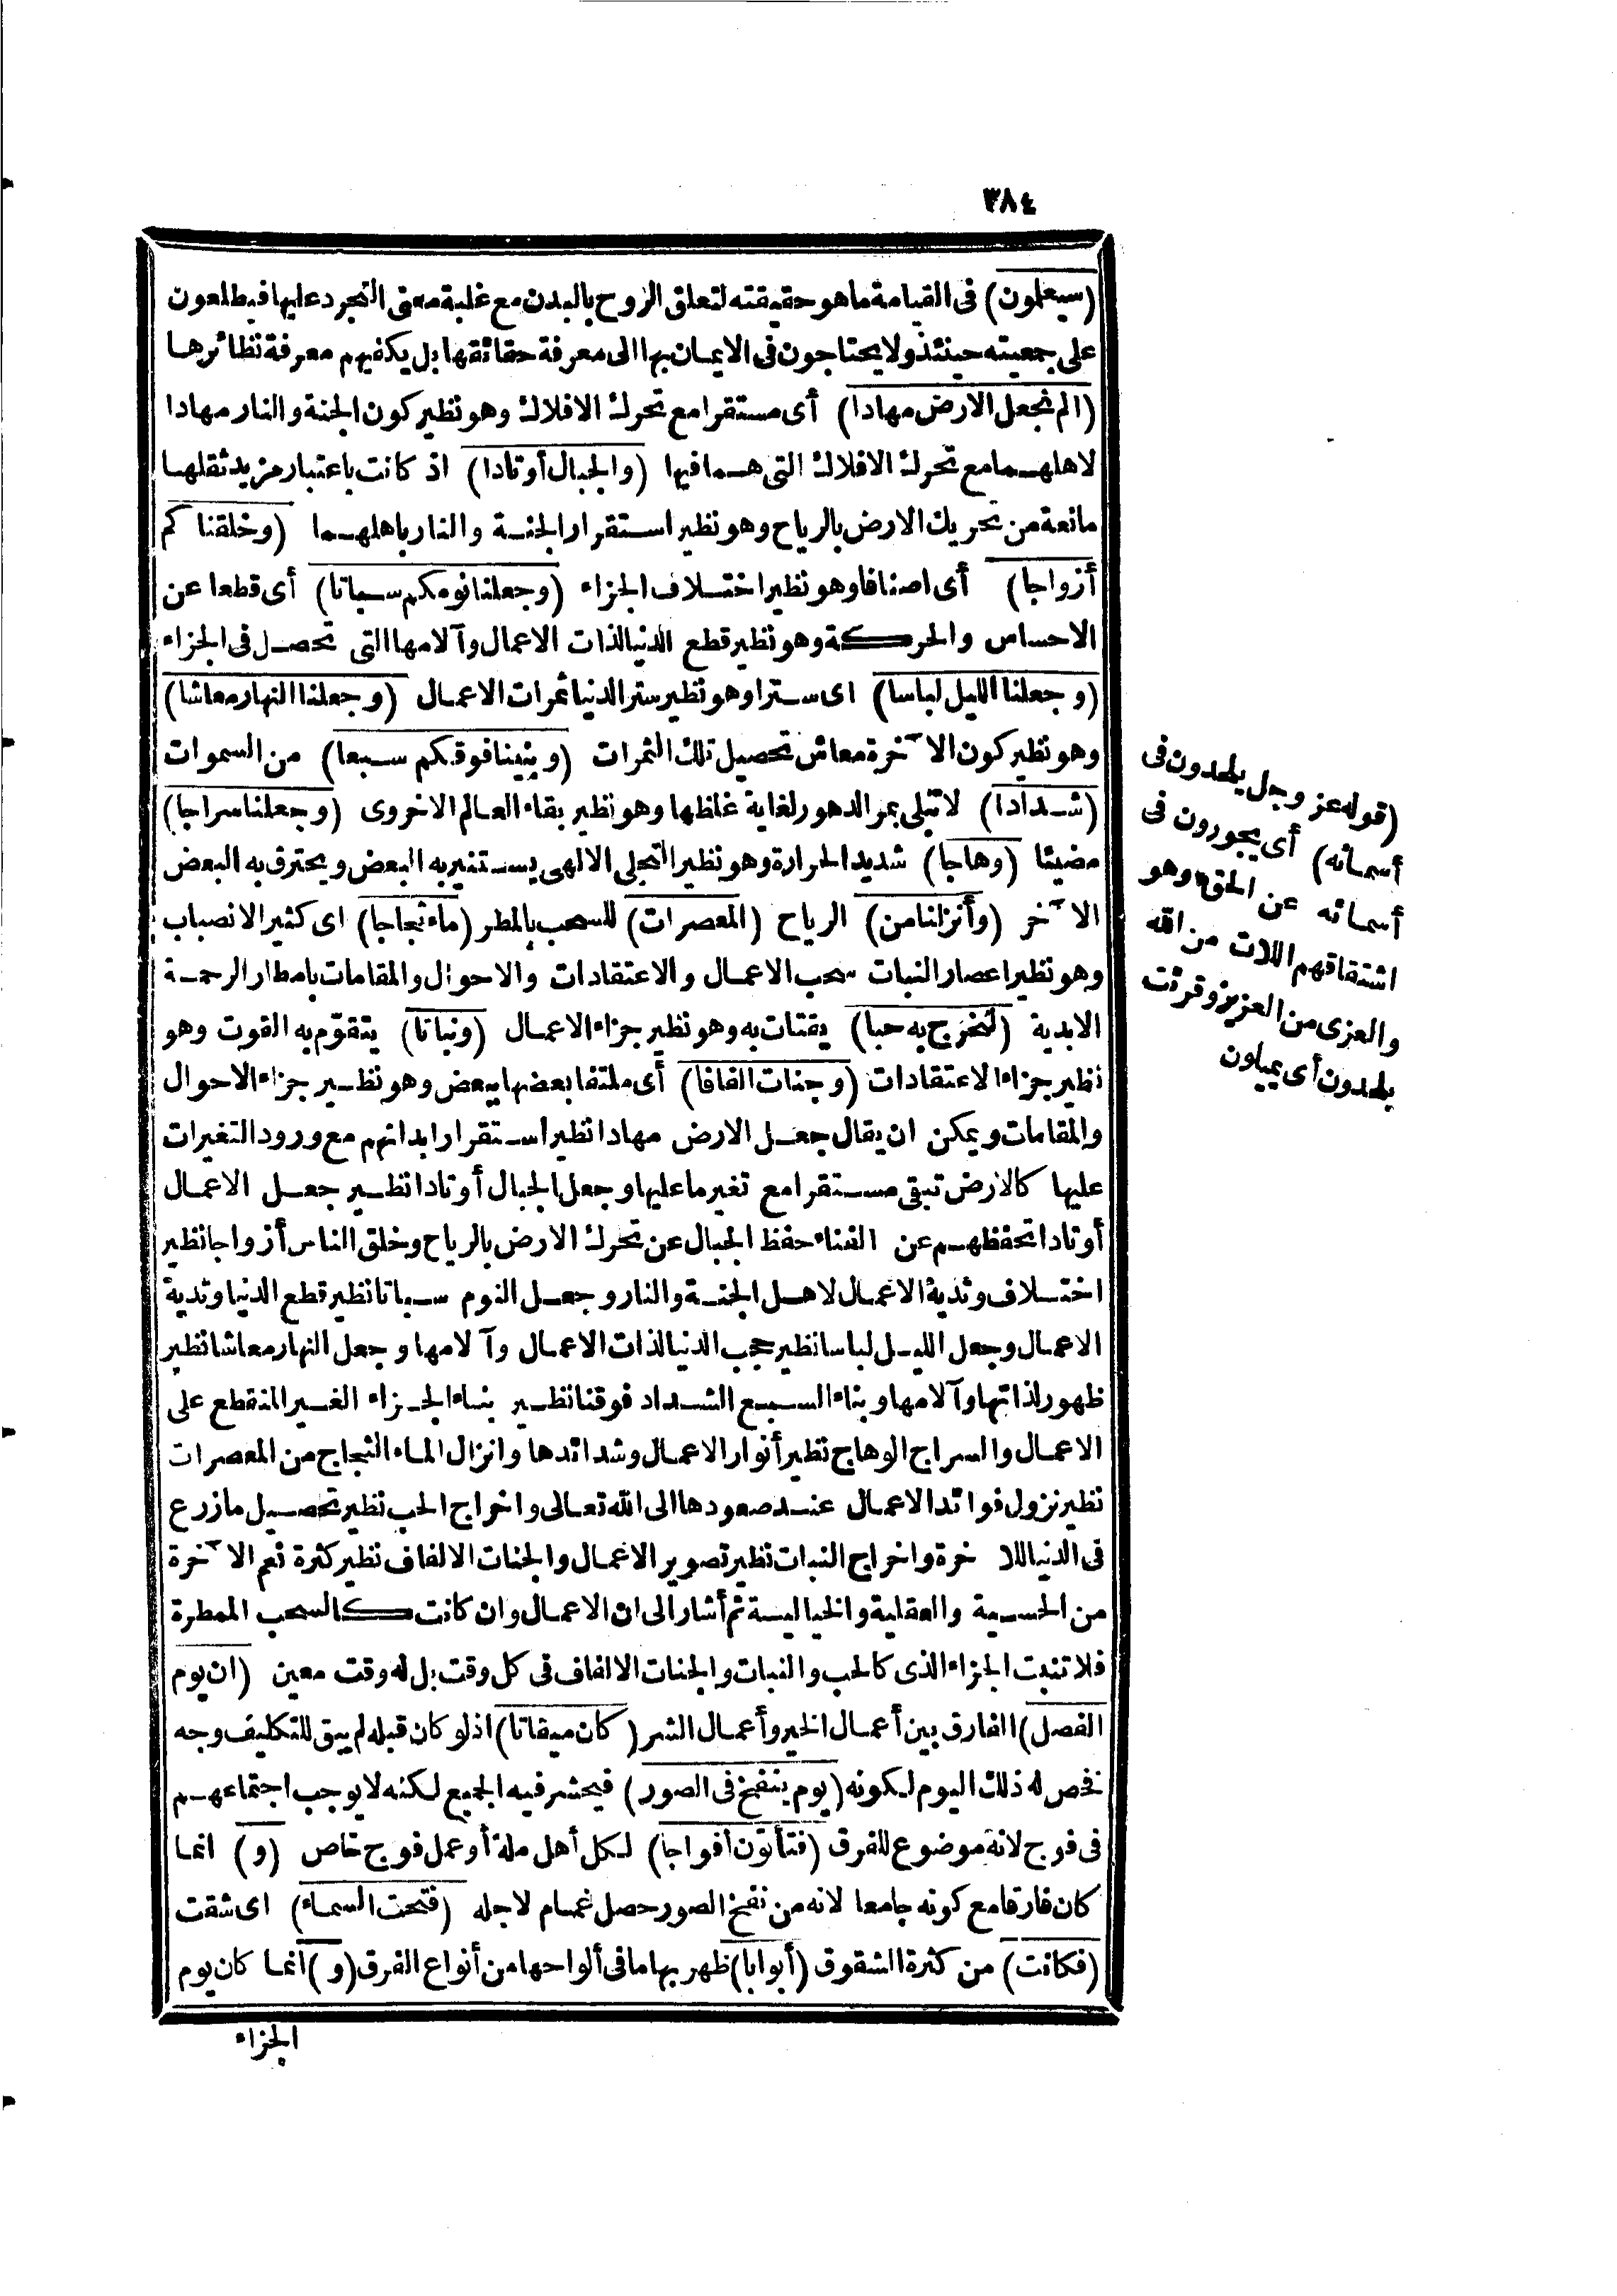 ٣٨٤
(سيعلمون) فى القيامة ما هو حقيقته لتعلق الروح بالبدن مع غلبة معنى التجرد عليها فيطلعون
على جمعيته حينئذ ولا يحتاجون فى الايمان بها الى معرفة حقائقها بل يكفيهم معرفة نظائرها
(الم نجعل الارض مهادا) أى مستقرا مع تحرك الافلاك وهو نظير كون الجنة والنار مهادا
لاهلهما مع تحرك الافلاك التى هما فيها (والجبال أوتادا) اذ كانت باعتبار مزيد ثقلها
مانعة من تحريك الارض بالرياح وهو نظير استقرار الجنة والنار باهلهما (وخلقناكم
أزواجا) أى اصنافا وهو نظير اختلاف الجزاء (وجعلنا نومكم سباتا) أى قطعا عن
الاحساس والحركة وهو نظير قطع الدنيا لذات الاعمال وآلامها التى تحصل فى الجزاء
(وجعلنا الليل لباسا) اى سترا وهو نظير ستر الدنيا ثمرات الاعمال (وجعلنا النهار معاشا)
وهو نظير كون الآخرة معاش تحصيل تلك الثمرات (وبنينا فوقكم سبعا) من السموات
(شدادا) لا تبلى بمر الدهور لغاية غلظها وهو نظير بقاء العالم الاخروى (وجعلنا سراجا)
مضيئا (وهاجا) شديد الحرارة وهو نظير التجلى الالهى يستنير به البعض ويحترق به البعض
الآخر (وأنزلنا من) الرياح (المعصرات) للسحب بالمطر (ماء ثجاجا) اى كثير الانصباب
وهو نظير اعصار النبات سحب الاعمال والاعتقادات والاحوال والمقامات بامطار الرحمة
الابدية (لنخرج به حبا) يقتات به وهو نظير جزاء الاعمال (ونباتا) يتقوّم به القوت وهو
نظير جزاء الاعتقادات (وجنات الفافا) أى ملتفا بعضها ببعض وهو نظير جزاء الاحوال
والمقامات ويمكن ان يقال جعل الارض مهادا نظير استقرار ابدانهم مع ورود التغيرات
عليها كالارض تبقى مستقرا مع تغير ما عليها وجعل الجبال أوتادا نظير جعل الاعمال
أوتادا تحفظهم عن الفناء حفظ الجبال عن تحرك الارض بالرياح وخلق الناس أزواجا نظير
اختلاف وتدية الاعمال لاهل الجنة والنار وجعل النوم سباتا نظير قطع الدنيا وتدية
الاعمال وجعل الليل لباسا نظير حجب الدنيا لذات الاعمال وآلامها وجعل النهار معاشا نظير
ظهور لذاتها وآلامها وبناء السبع الشداد فوقنا نظير بناء الجزاء الغير المنقطع على
الاعمال والسراج الوهاج نظير أنوار الاعمال وشدائدها وانزال الماء الثجاج من المعصرات
نظير نزول فوائد الاعمال عند صعودها الى الله تعالى واخراج الحب نظير تحصيل ما زرع
فى الدنيا للآخرة واخراج النبات نظير تصوير الاعمال والجنات الالفاف نظير كثرة نعم الآخرة
من الحسية والعقلية والخيالية ثم أشار الى ان الاعمال وان كانت كالسحب الممطرة
فلا تنبت الجزاء الذى كالحب والنبات والجنات الالفاف فى كل وقت بل له وقت معين (ان يوم
الفصل) الفارق بين أعمال الخير وأعمال الشر (كان ميقاتا) اذ لو كان قبله لم يبق للتكليف وجه
فخص له ذلك اليوم لكونه (يوم ينفخ فى الصور) فيحشر فيه الجميع لكنه لا يوجب اجتماعهم
فى فوج لانه موضوع للفرق (فتأتون أفواجا) لكل أهل ملة أو عمل فوج خاص (و) انما
كان فارقا مع كونه جامعا لانه من نفخ الصور حصل غمام لاجله (فتحت السماء) اى شقت
(فكانت) من كثرة الشقوق (أبوابا) ظهر بها ما فى ألواحها من أنواع الفرق (و) انما كان يوم
الجزاء
(قوله عز وجل يلحدون فى
أسمائه) أى يجورون فى
أسمائه عن الحق وهو
اشتقاقهم اللات من الله
والعزى من العزيز وقرئت
يلحدون أى يميلون